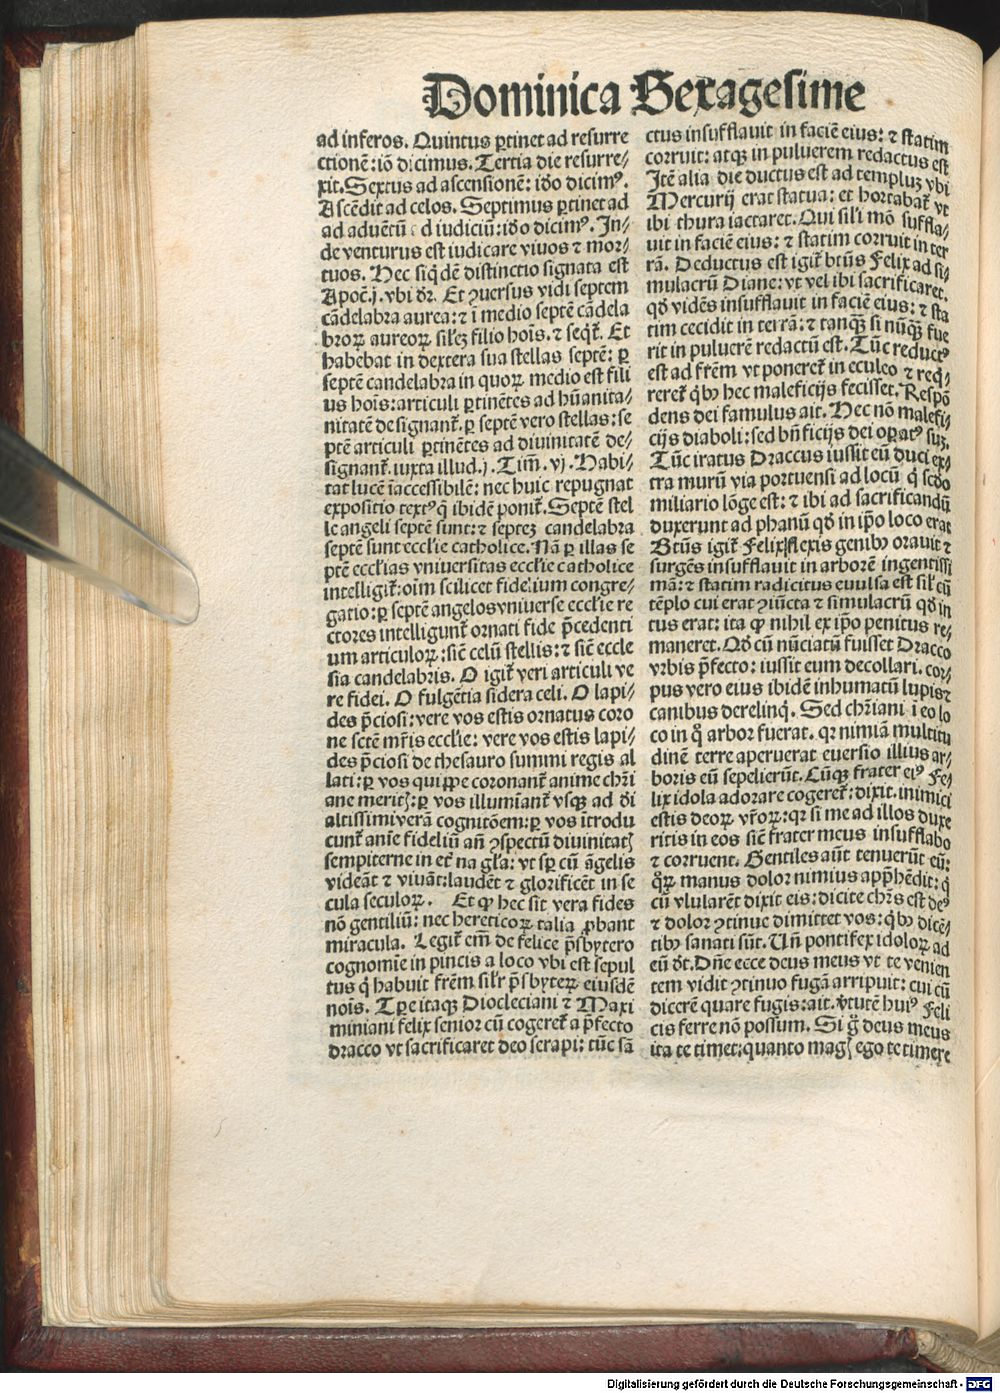 Dominica Sexagesime
ad inferos. Quintus ꝑtinet ad resurre
ctionē: iō dicimus. Tertia die resurre⸗
xit. Sextus ad ascensionē: iđo dicimꝰ.
Ascēdit ad celos. Septimus ꝑtinet ad
ad aduētū d iudiciū: iđo dicimꝰ. In⸗
de venturus est iudicare viuos ⁊ mor⸗
tuos. Hec siqͥdē distinctio signata est
Apoč. j. vbi dr̄. Et ꝯuersus vidi septem
cādelabra aurea: ⁊ ī medio septē cādela
broꝝ aureoꝝ sil̄eꝫ filio hoīs. ⁊ seqͥt̄. Et
habebat in dextera sua stellas septē: ꝑ
septē candelabra in quoꝝ medio est fili
us hoīs: articuli ꝑtinētes ad hūanita⸗
nitatē designant̄. ꝑ septē vero stellas: se
ptē articuli ꝑtinētes ad diuinitatē de⸗
signant̄. iuxta illud. j. Tim̄. vj. Habi⸗
tat lucē īaccessibilē: nec huic repugnat
expositio textꝰ qͥ ibidē ponit̄. Septē stel
le angeli septē sunt: ⁊ septeꝫ candelabra
septē sunt eccl̄ie catholice. Nā ꝑ illas se
ptē eccl̄ias vniuersitas eccl̄ie catholice
intelligit̄: oīm scilicet fidelium congre⸗
gatio: ꝑ septē angelos vniuerse eccl̄ie re
ctores intelligunt̄ ornati fide p̄cedenti
um articuloꝝ: sic̄ celū stellis: ⁊ sic̄ eccle
sia candelabris. O igit̄ veri articuli ve
re fidei. O fulgētia sidera celi. O lapi⸗
des p̄ciosi: vere vos estis ornatus coro
ne sctē mr̄is eccl̄ie: vere vos estis lapi⸗
des p̄ciosi de thesauro summi regis al
lati: ꝑ vos quippe coronant̄ anime chr̄i
ane meritꝭ: ꝑ vos illumīant̄ vsqꝫ ad đi
altissimi verā cognitōem: ꝑ vos ītrodu
cunt̄ anīe fideliū añ ꝯspectū diuinitatꝭ
sempiterne in et̄na gl̄a: vt sꝑ cū āgelis
videāt ⁊ viuāt: laudēt ⁊ glorificēt in se
cula seculoꝝ. Et ꝙ hec sit vera fides
nō gentiliū: nec hereticoꝝ talia ꝓbant
miracula. Legit̄ em̄ de felice p̄sbytero
cognomīe in pincis a loco vbi est sepul
tus qͥ habuit frēm sil̄r p̄sbyteꝝ eiusdē
noīs. Tꝑe itaqꝫ Diocleciani ⁊ Maxi
miniani felix senior cū cogeret̄ a p̄fecto
dracco vt sacrificaret deo serapi: tūc sā
ctus insufflauit in faciē eius: ⁊ statim
corruit: atqꝫ in puluerem redactus est
Itē alia die ductus est ad templuꝫ vbi
Mercurij erat statua: et hortabat̄ vt
ibi thura iactaret. Qui sil̄i mō suffla⸗
uit in faciē eius: ⁊ statim corruit in ter
rā. Deductus est igit̄ btūs Felix ad si⸗
mulacrū Diane: vt vel ibi sacrificaret.
qđ vidēs insufflauit in faciē eius: ⁊ sta
tim cecidit in terrā: ⁊ tanqꝫ̄ si nūqꝫ̄ fue
rit in puluerē redactū est. Tūc reductꝰ
est ad frēm vt poneret̄ in eculeo ⁊ reqͥ⸗
reret̄ qͥbꝰ hec maleficijs fecisset. Respō
dens dei famulus ait. Hec nō malefi⸗
cijs diaboli: sed bn̄ficijs dei oꝑatꝰ suꝫ.
Tūc iratus Draccus iussit eū duci ex⸗
tra murū via portuensi ad locū qͥ scđo
miliario lōge est: ⁊ ibi ad sacrificandū
duxerunt ad phanū qđ in ip̄o loco erat
Btūs igit̄ Felix flexis genibꝰ orauit ⁊
surgēs insufflauit in arborē ingentissi
mā: ⁊ statim radicitus euulsa est sil̄ cū
tēplo cui erat ꝯiūcta ⁊ simulacrū qđ in
tus erat: ita ꝙ nihil ex ip̄o penitus re⸗
maneret. Qđ cū nūciatū fuisset Dracco
vrbis p̄fecto: iussit eum decollari. cor⸗
pus vero eius ibidē inhumatū lupis ⁊
canibus derelinqͥ. Sed chr̄iani ī eo lo
co in qͦ arbor fuerat. qꝛ nimiā multitu
dinē terre aperuerat euersio illius ar⸗
boris eū sepelierūt. Cūqꝫ frater eiꝰ Fe⸗
lix idola adorare cogeret̄: dixit. inimici
estis deoꝝ vr̄oꝝ: qꝛ si me ad illos duxe
ritis in eos sic̄ frater meus insufflabo
⁊ corruent. Gentiles aūt tenuerūt eū:
qͦꝝ manus dolor nimius app̄hēdit: qͥ
cū vlularēt dixit eis: dicite chr̄s est deꝰ
⁊ dolor ꝯtinue dimittet vos: qͥbꝰ dicē⸗
tibꝰ sanati sūt. Uñ pontifex idoloꝝ ad
eū đt. Dn̄e ecce deus meus vt te venien
tem vidit ꝯtinuo fugā arripuit: cui cū
dicerē quare fugis: ait. v̄tutē huiꝰ Feli
cis ferre nō possum. Si gͦ deus meus
ita te timet: quanto magꝭ ego te timere
Digitalisierung gefördert durch die Deutsche Forschungsgemeinschaft - DFG